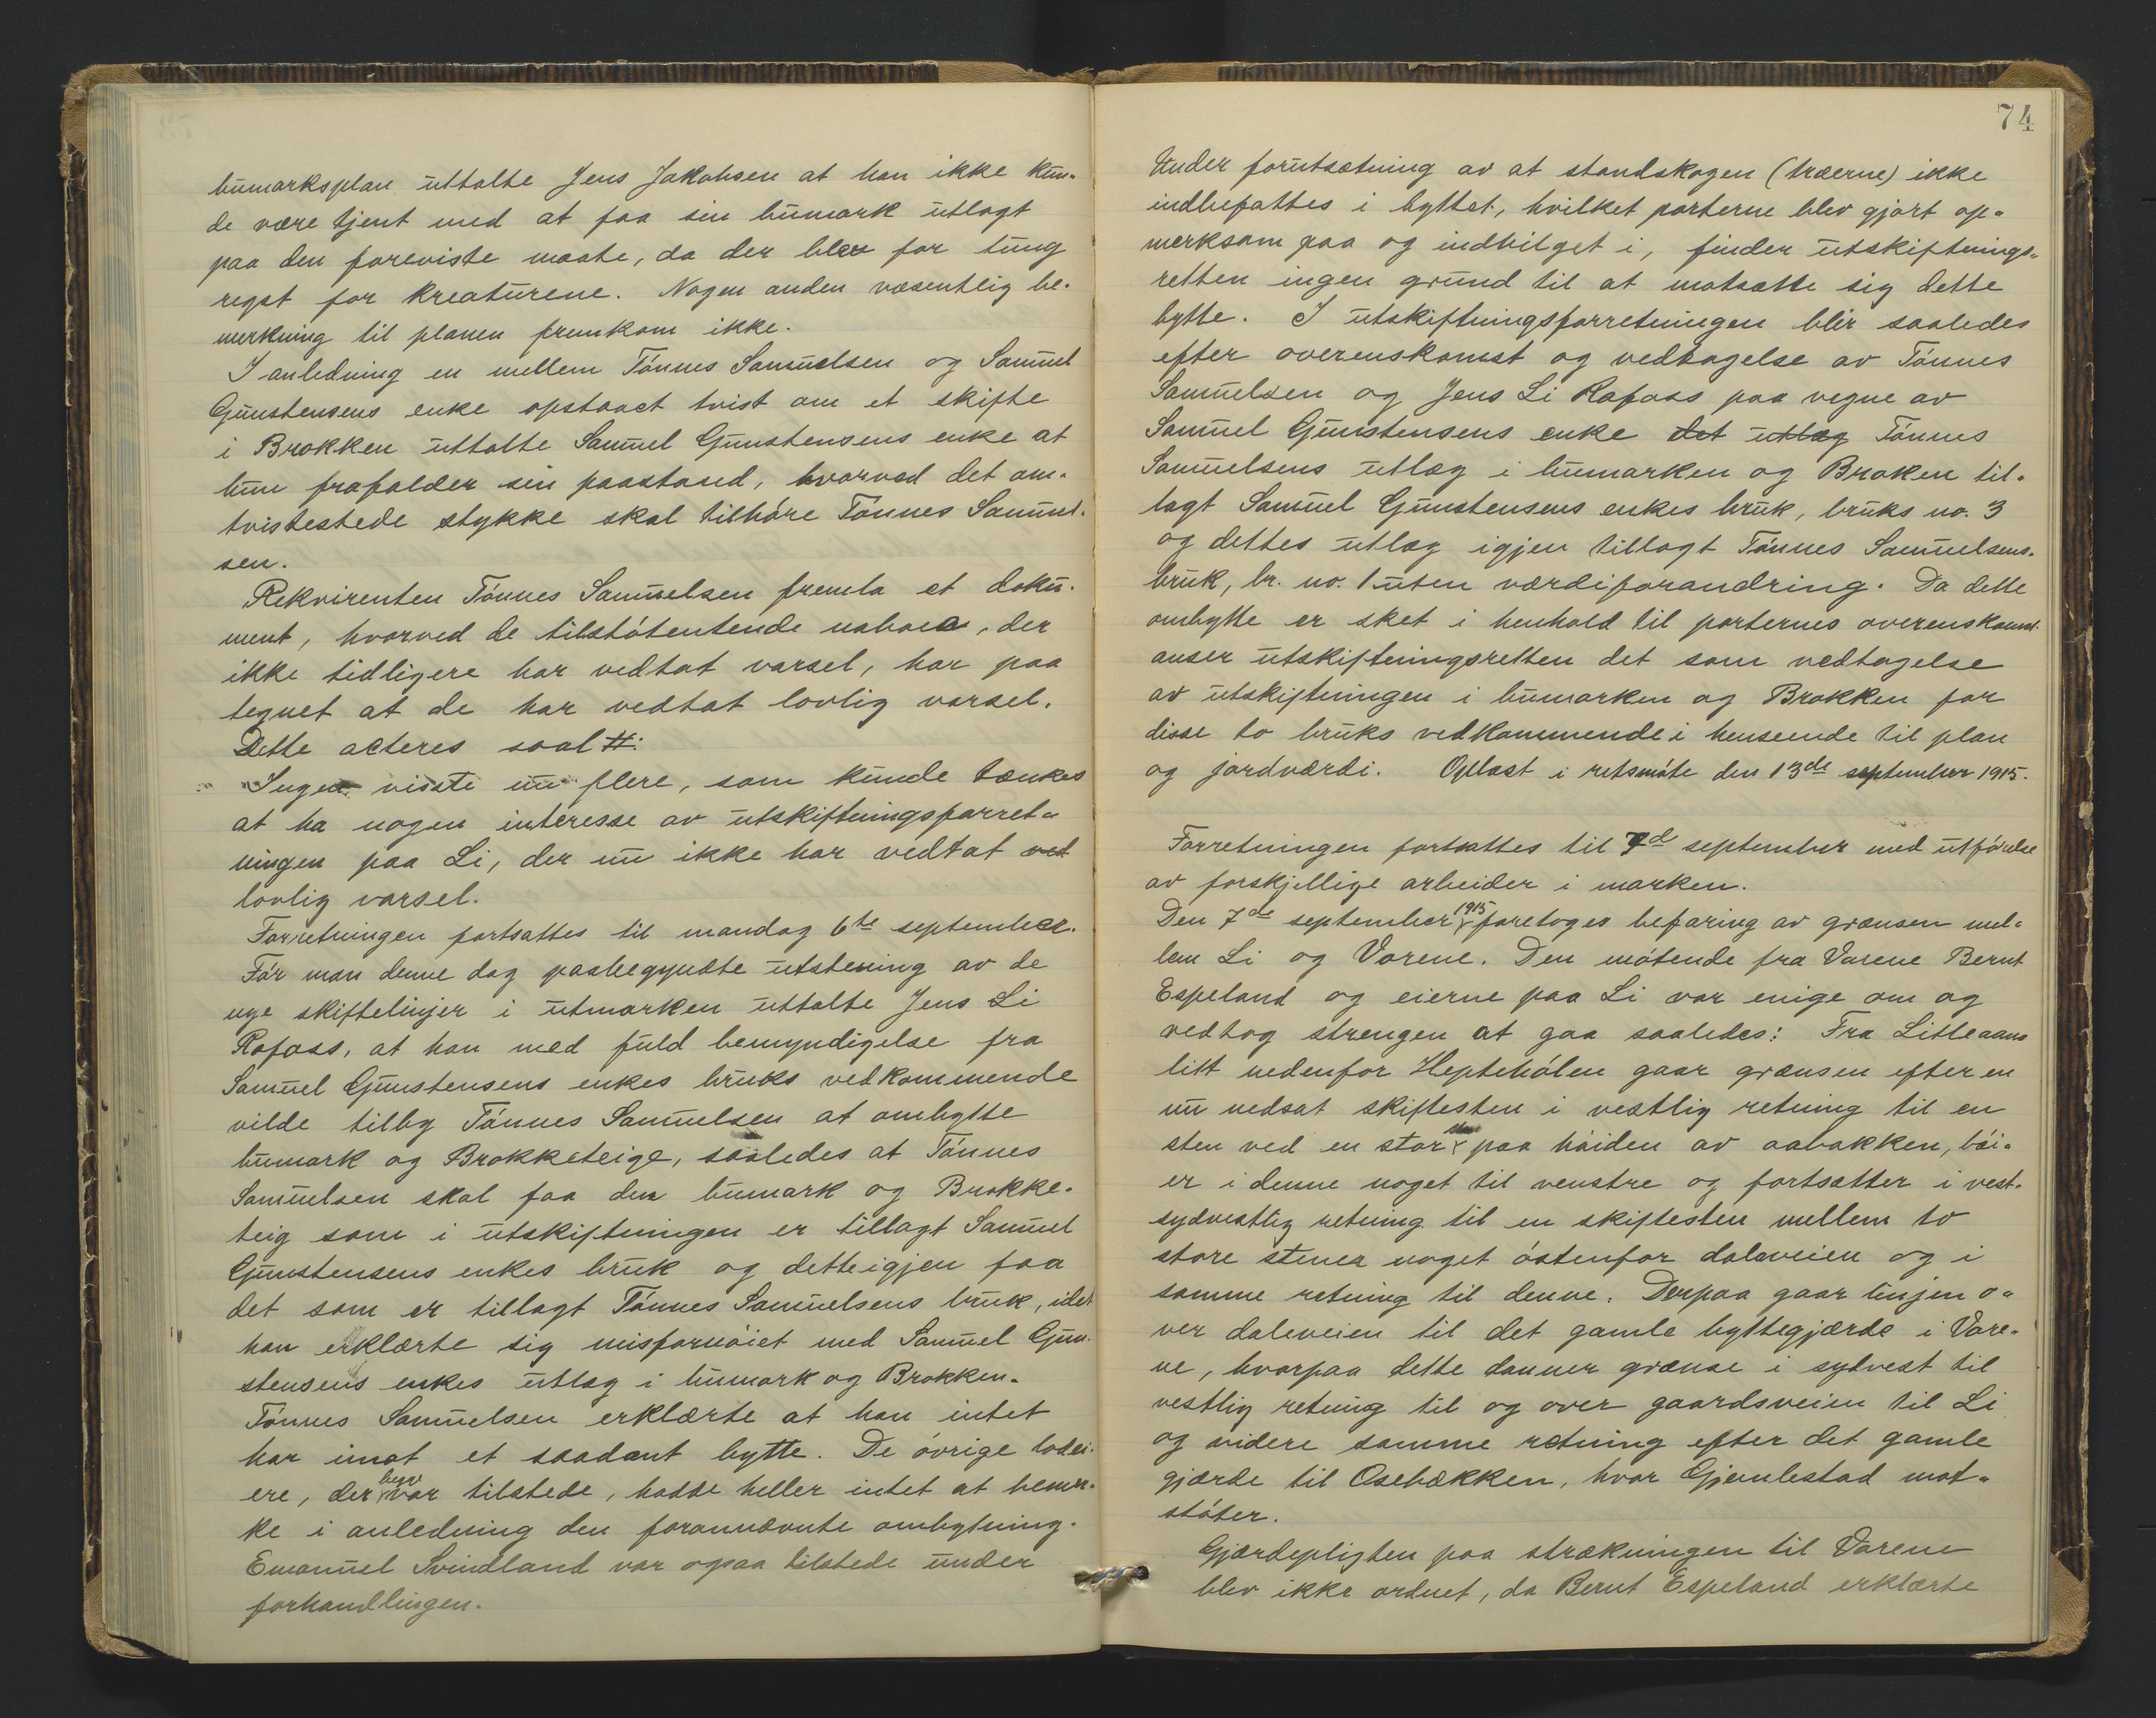 bumarksplan uttalte Jens Jakobsen at han ikke kun-
de være tjent med at faa sin bumark utlagt
paa den foreviste maate, da der blev for tung
regst for kreaturene. Nogen anden væsentlig be-
merkning til planen fremkom ikke.
I anledning en mellem Tönnes Samuelsen og Samuel
Gunstensens enke opstaaet tvist om et skifte
i Brokken uttalte Samuel Gunstensens enke at
hun frafalder sin paastand, hvorved det om-
tvistestede stykke skal tilhöre Tönnes Samuel-
sen.
Rekvirenten Tönnes Samuelsen fremla et doku-
ment, hvorved de tilstötentende naboer, der
ikke tidligere har vedtat varsel, har paa
tegnet at de har vedtat lovlig varsel.
Dette acteres saal #:
Ingen visste nu flere, som kunde tænkes
at ha nogen interesse av utskiftningsforret-
ningen paa Li, der nu ikke har vedtat ved
lovlig varsel.
Forretningen fortsattes til mandag 6te september.
För man denne dag paabegyndte utstening av de
nye skiftelinjer i utmarken uttalte Jens Li
Rafoss, at han med fuld bemyndigelse fra
Samuel Gunstensens enkes bruks vedkommende
vilde tilby Tönnes Samuelsen at ombytte
bumark og Brokketeige, saaledes at Tönnes
Samuelsen skal faa den bumark og Brokke-
teig som i utskiftningen er tillagt Samuel
Gunstensens enkes bruk og dette igjen faa
det som er tillagt Tönnes Samuelsens bruk, idet
han erklærte sig misfornöiet med Samuel Gun-
stensens enkes utlæg i bumark og Brokken.
Tönnes Samuelsen erklærte at han intet
har imot et saadant bytte. De övrige lodei-
ere, der herv var tilstede, hadde heller intet at bemer-
ke i anledning den forannævnte ombytning.
Emanuel Svindland var ogsaa tilstede under
forhandlingen.
74
Under forutsætning av at standskogen (træerne) ikke
indbefattes i byttet, hvilket parterne blev gjort op-
merksom paa og indvilget i, finder utskiftnings-
retten ingen grund til at motsætte sig dette
bytte. I utskiftningsforretningen blir saaledes
efter overenskomst og vedtagelse av Tönnes
Samuelsen og Jens Li Rafoss paa vegne av
Samuel Gunstensens enke det utlæg Tönnes
Samuelsens utlæg i bumarken og Broken til-
lagt Samuel Gunstensens enkes bruk, bruks no. 3
og dettes utlæg igjen tillagt Tönnes Samuelsens
bruk, br. no. 1 uten værdiforandring. Da dette
ombytte er sket i henhold til parternes overenskomst
anser utskiftningsretten det som vedtagelse
av utskiftningen i bumarken og Brokken for
disse to bruks vedkommende i henseende til plan
og jordværdi. Oplæst i retsmöte den 13de september 1915.
Forretningen fortsattes til 7de september med utförelse
av forskjellige arbeider i marken.
Den 7de september 1915 foretoges befaring av grænsen mel-
lem Li og Varene. Den mötende fra Varene Bernt
Espeland og eierne paa Li var enige om og
vedtog strengen at gaa saaledes: Fra Litleaaens
litt nedenfor Heptehölen gaar grænsen efter en
nu nedsat skiftesten i vestlig retning til en
sten ved en stor sten paa höiden av aabakken, böi-
er i denne noget til venstre og fortsætter i vest-
sydvestlig retning til en skiftesten mellem to
store stener noget östenfor daleveien og i
samme retning til denne. Derpaa gaar linjen o-
ver daleveien til det gamle byttegjærde i Vare-
ne, hvorpaa dette danner grænse i sydvest til
vestlig retning til og over gaardsveien til Li
og videre samme retning efter det gamle
gjærde til Osebækken, hvor Gjemlestad mot-
stöter.
Gjærdepligten paa strækningen til Varene
blev ikke ordnet, da Bernt Espeland erklærte